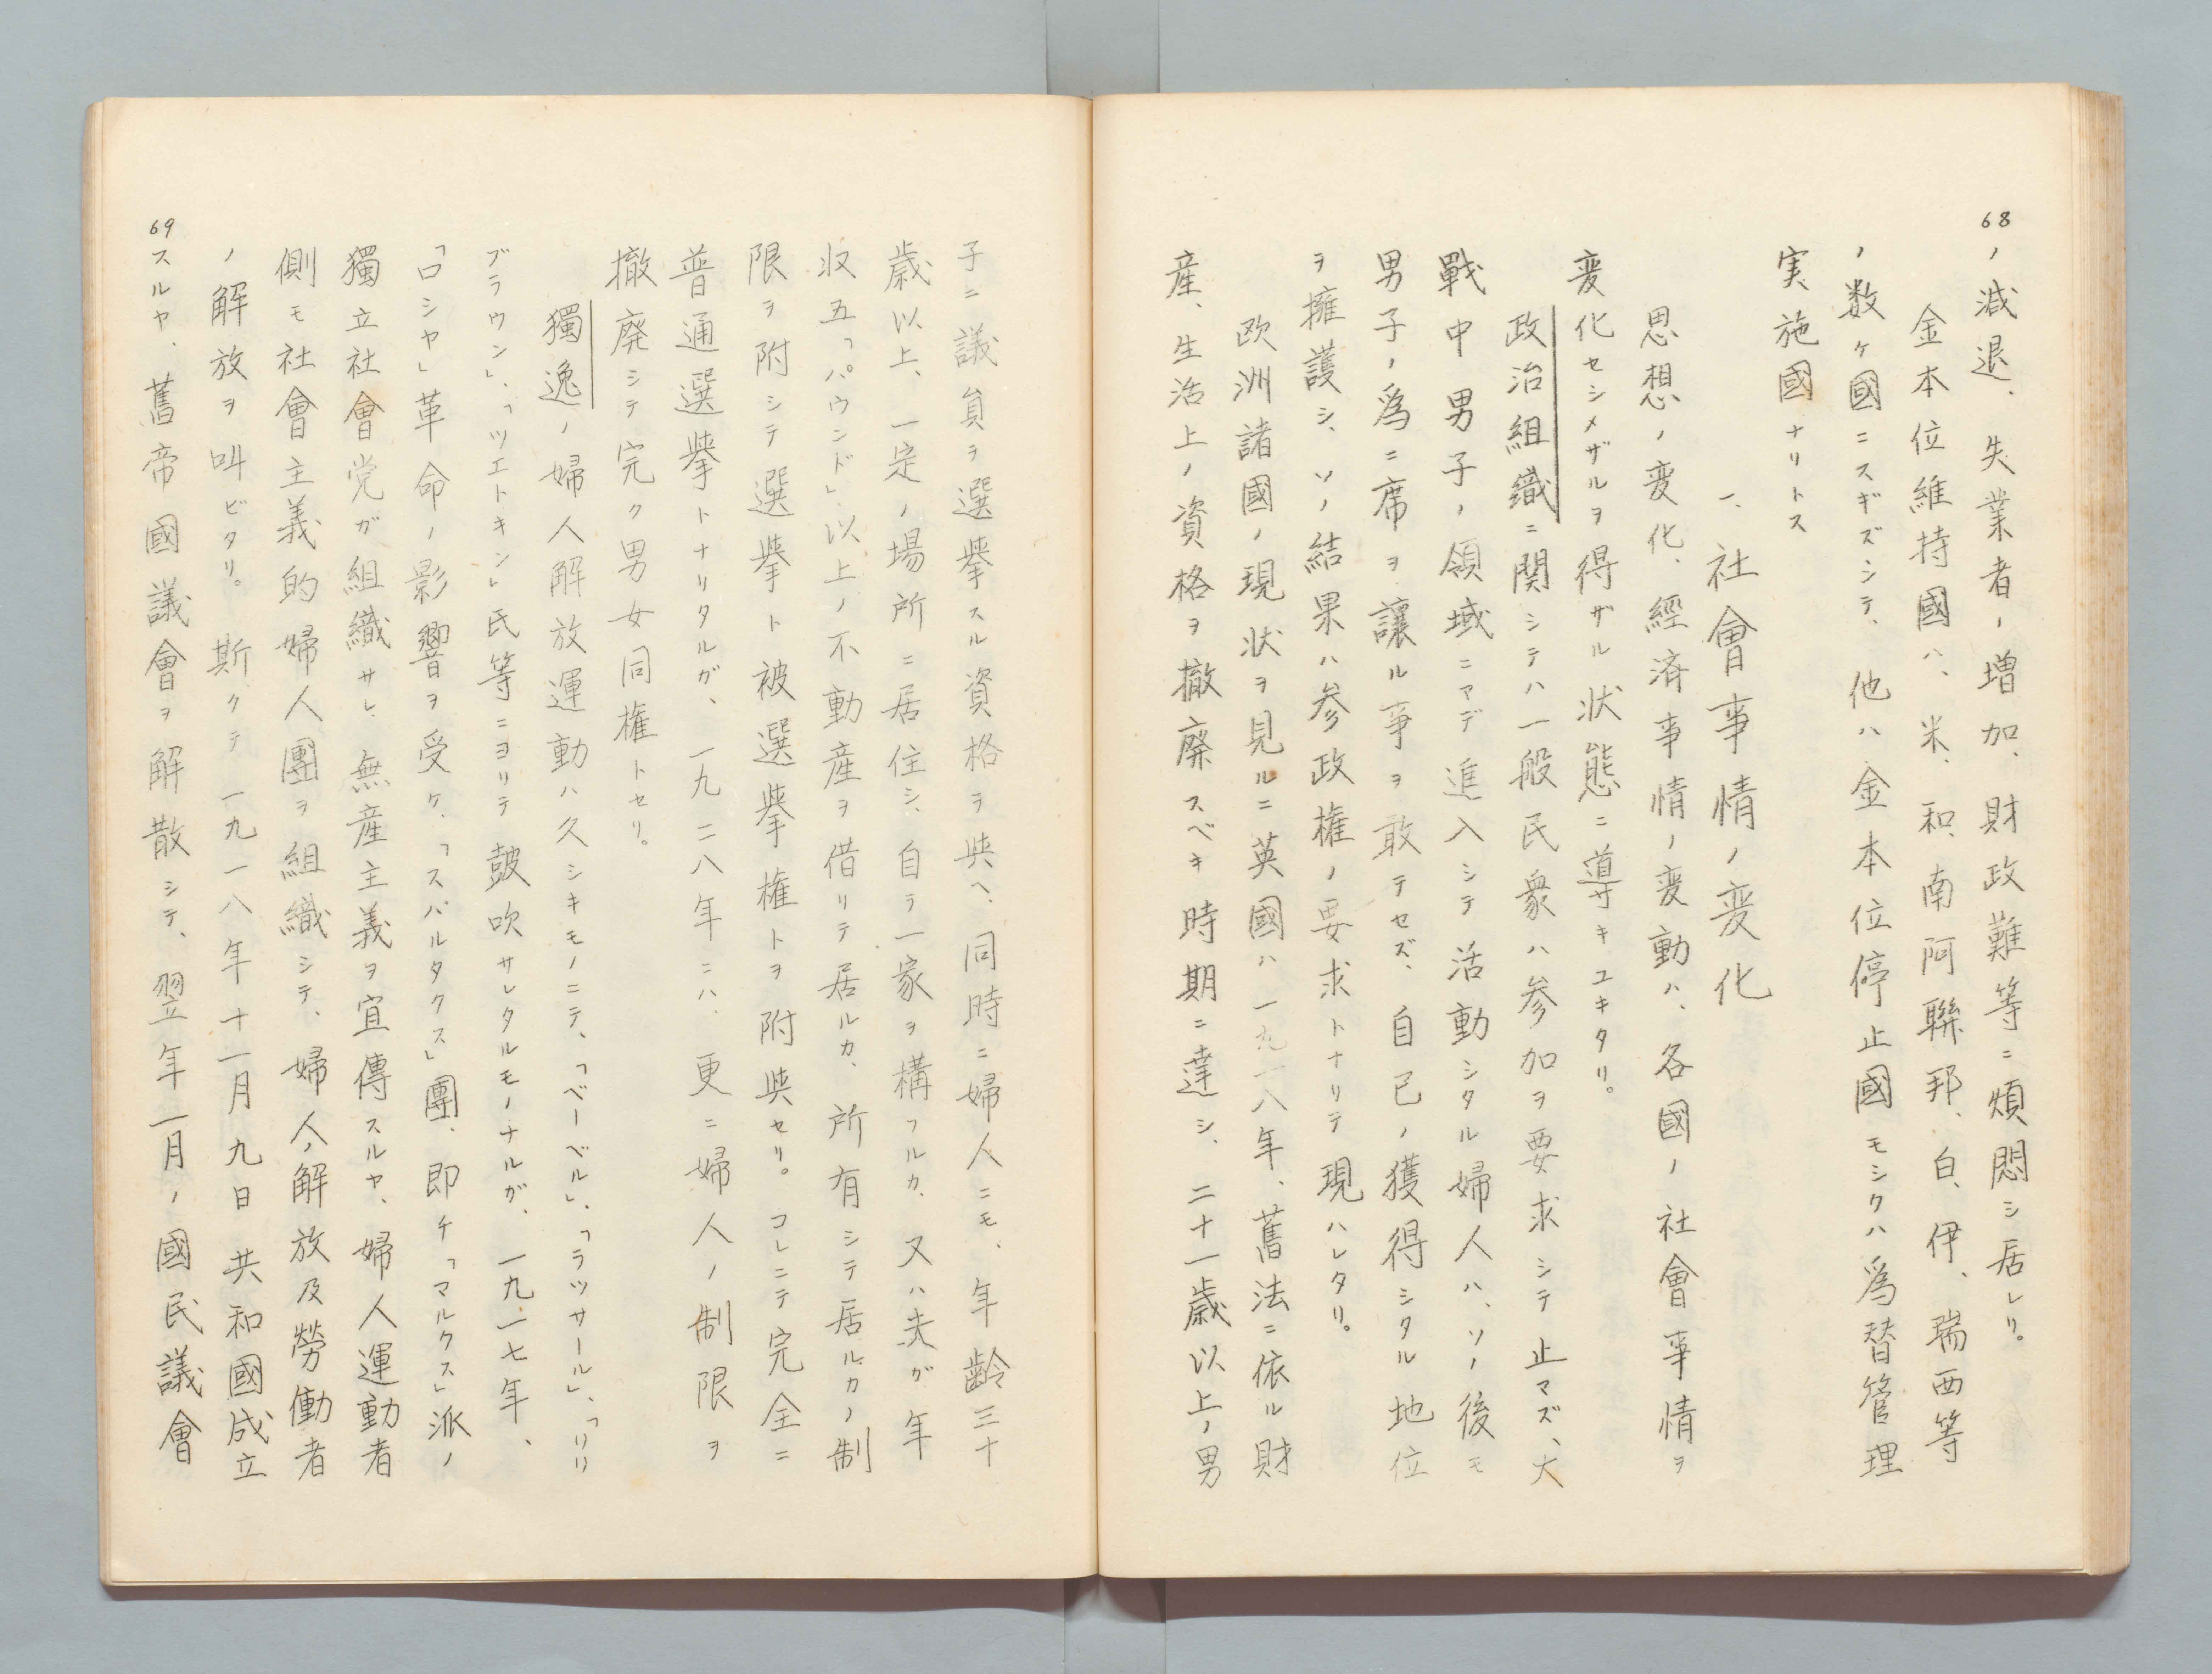 68
ノ減退、失業者ノ増加、財政難等ニ煩悶シ居レリ。
金本位維持國ハ、米、和、南阿聯邦、白、伊、瑞西等
ノ数ヶ國ニスギズシテ、他ハ金本位停止國モシクハ爲替管理
実施國ナリトス
一、社會事情ノ変化
思想ノ変化、經済事情ノ変動ハ、各國ノ社會事情ヲ
変化セシメザルヲ得ザル状態ニ導キユキタリ。
政治組織ニ関シテハ一般民衆ハ参加ヲ要求シテ止マズ、大
戰中男子ノ領域ニマデ進入シテ活動シタル婦人ハ、ソノ後モ
男子ノ爲ニ席ヲ譲ル事ヲ敢テセズ、自己ノ獲得シタル地位
ヲ擁護シ、ソノ結果ハ参政権ノ要求トナリテ現ハレタリ。
欧洲諸國ノ現状ヲ見ルニ英國ハ一九一八年、舊法ニ依ル財
産、生活上ノ資格ヲ撤廃スベキ時期ニ達シ、二十一歳以上ノ男
子ニ議員ヲ選挙スル資格ヲ與ヘ、同時ニ婦人ニモ、年齢三十
歳以上、一定ノ場所ニ居住シ、自ラ一家ヲ構フルカ、又ハ夫ガ年
収五「パウンド」以上ノ不動産ヲ借リテ居ルカ、所有シテ居ルカノ制
限ヲ附シテ選挙ト被選挙権トヲ附與セリ。コレニテ完全ニ
普通選挙トナリタルガ、一九二八年ニハ、更ニ婦人ノ制限ヲ
撤廃シテ完ク男女同権トセリ。
獨逸ノ婦人解放運動ハ久シキモノニテ、「ベーベル」、「ラツサール」、「リリ
ブラウン」、「ツエトキン」氏等ニヨリテ皷吹サレタルモノナルガ、一九一七年、
「ロシヤ」革命ノ影響ヲ受ケ、「スパルタクス」團、即チ「マルクス」派ノ
獨立社會党ガ組織サレ、無産主義ヲ宣傳スルヤ、婦人運動者
側モ社會主義的婦人團ヲ組織シテ、婦人ノ解放及勞働者
ノ解放ヲ叫ビタリ。斯クテ一九一八年十一月九日共和國成立
69
スルヤ、舊帝國議會ヲ解散シテ、翌年一月ノ國民議會